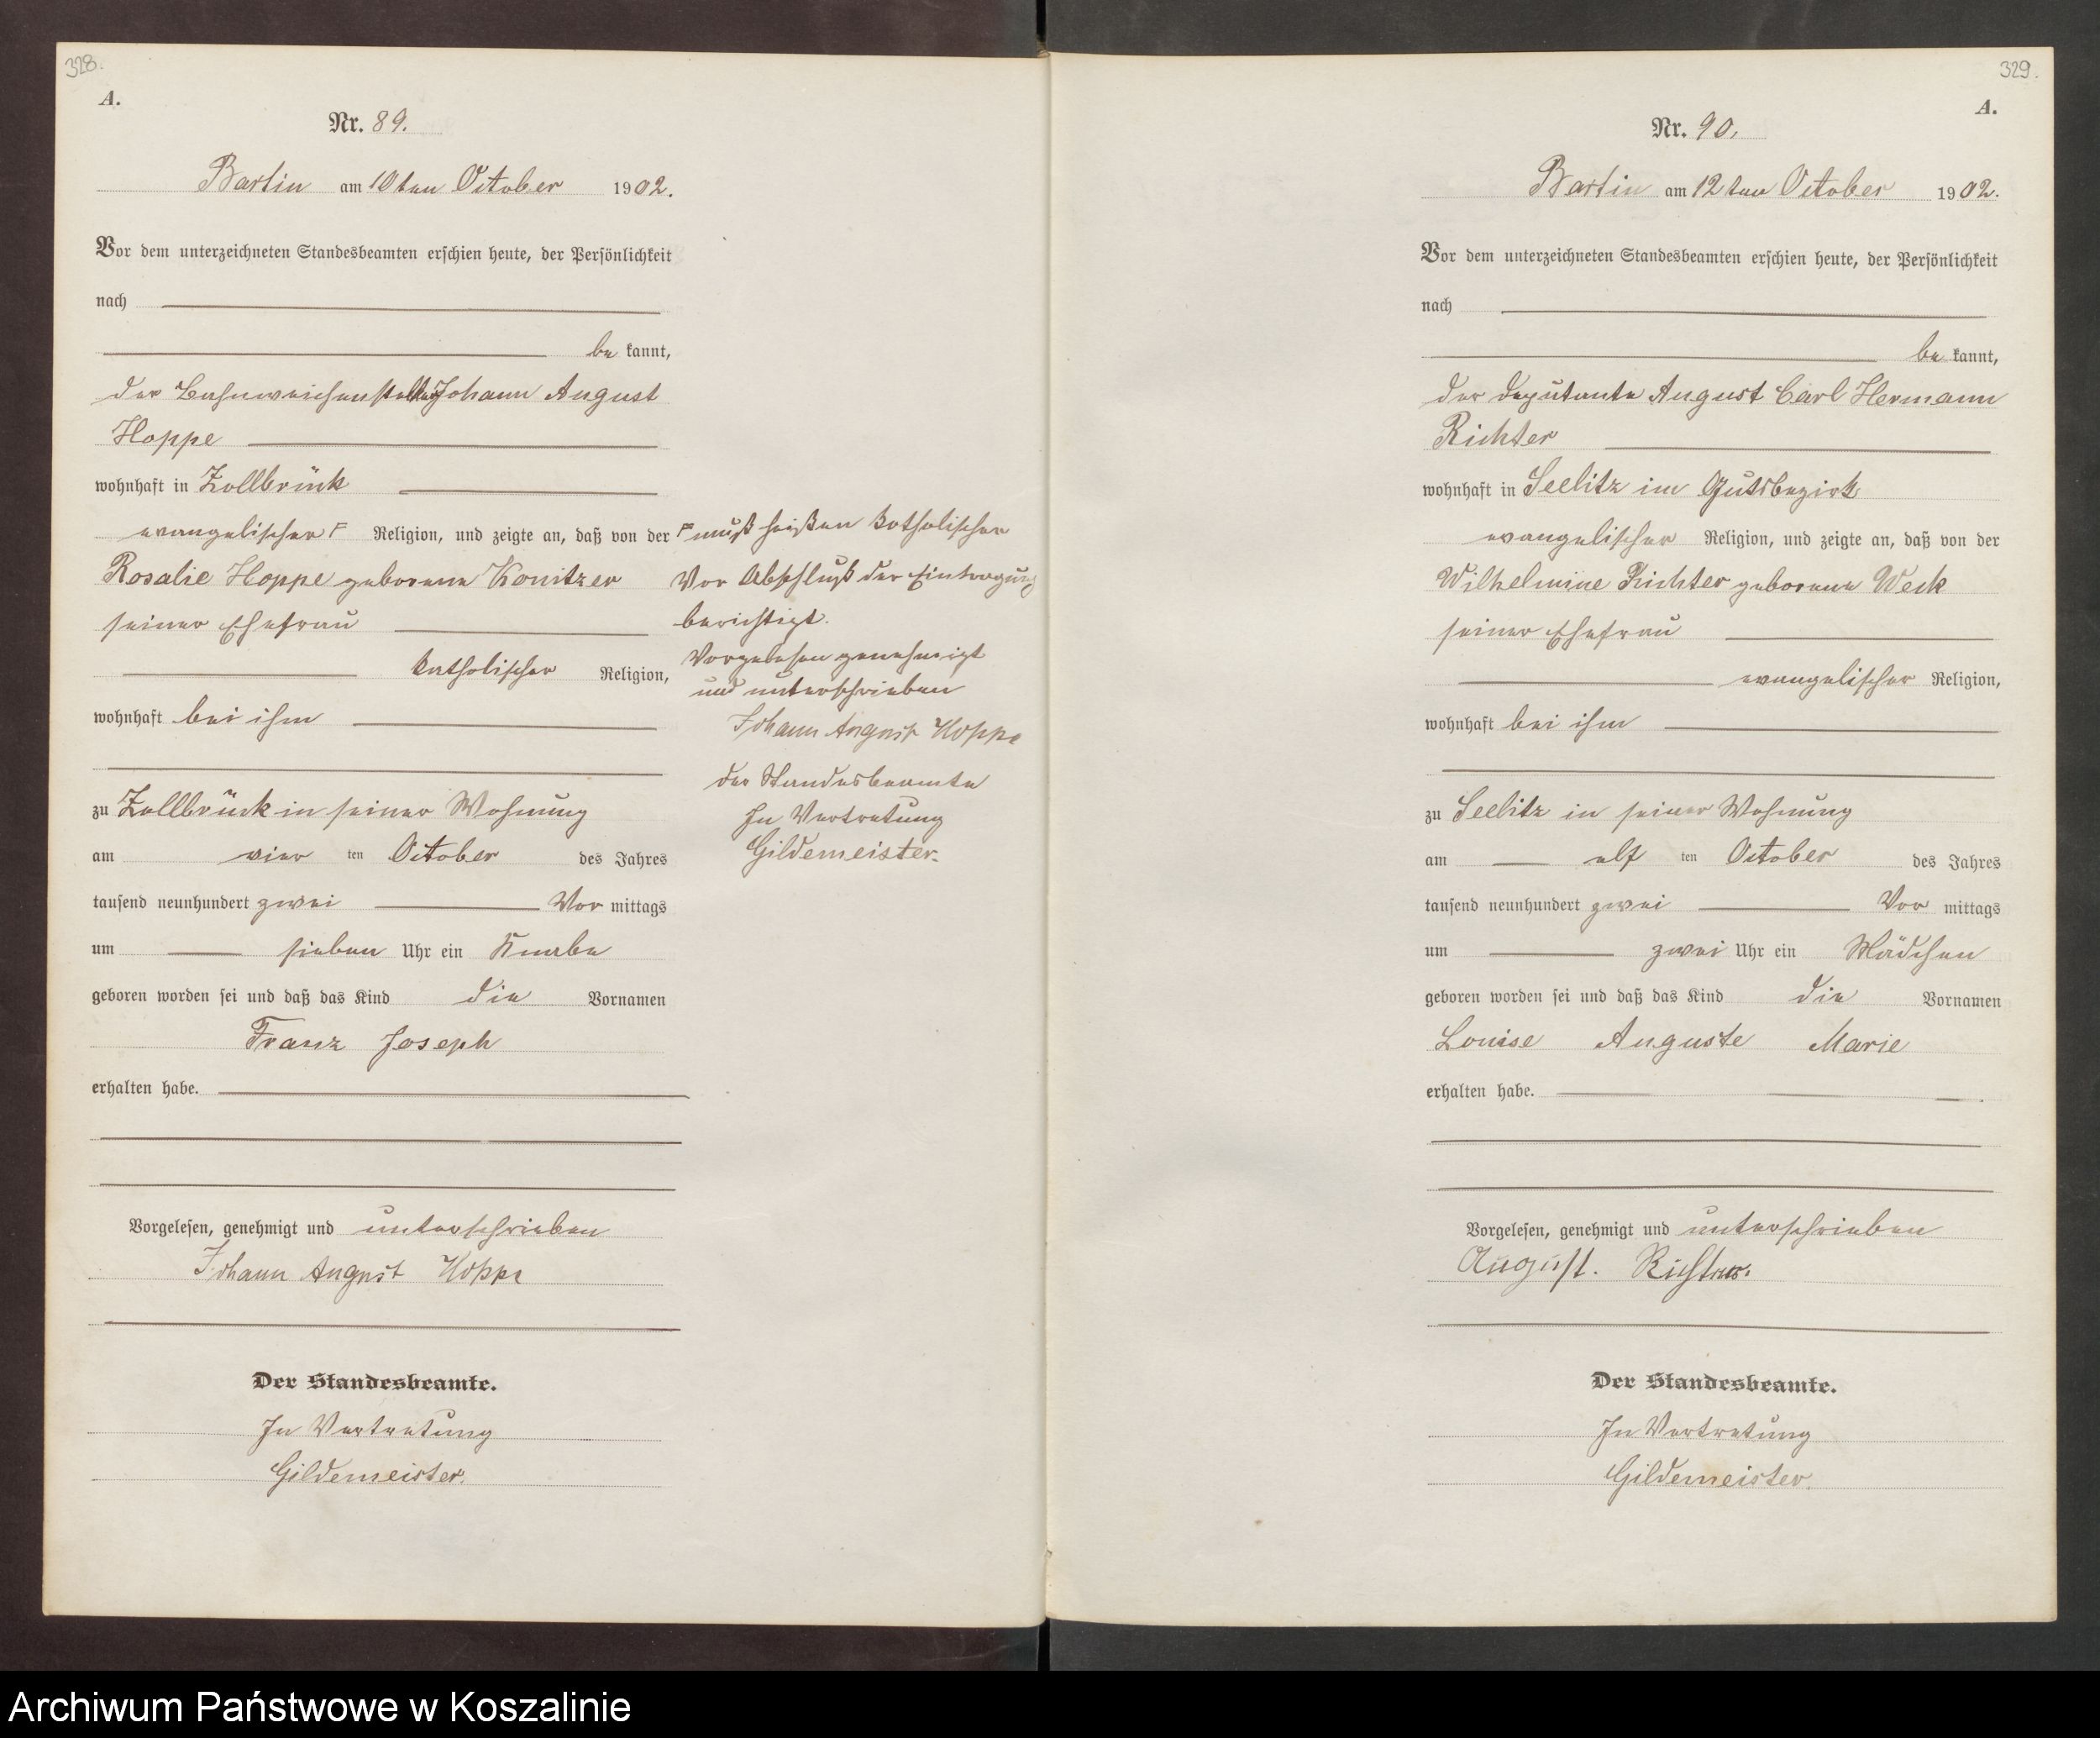 328.
A.
Nr. 89.
Bartin am 10ten October 1902.
Vor dem unterzeichneten Standesbeamten erschien heute, der Persönlichkeit
nach
be kannt,
der Bahnweichensteller Johann August
Hoppe
wohnhaft in Zollbrück
evangelischer F Religion, und zeigte an, daß von der
Rosalie Hoppe geborene Konitzer
seiner Ehefrau
katholischer Religion,
wohnhaft bei ihm
zu Zollbrück in seiner Wohnung
am vier ten October des Jahres
tausend neunhundert zwei Vor mittags
um sieben Uhr ein Knabe
geboren worden sei und daß das Kind die Vornamen
Franz Joseph
erhalten habe.
Vorgelesen, genehmigt und unterschrieben
Johann August Hoppe
Der Standesbeamte.
In Vertretung
Gildemeister.
F muß heißen katholischer
Vor Abschluß der Eintragung
berichtigt.
Vorgelesen genehmigt
und unterschrieben
Johann August Hoppe
der Standesbeamte
In Vertretung
Gildemeister.
329.
A.
Nr. 90.
Bartin am 12ten October 1902.
Vor dem unterzeichneten Standesbeamten erschien heute, der Persönlichkeit
nach
be kannt,
der Deputante August Carl Hermann
Richter
wohnhaft in Seelitz im Gutsbezirk
evangelischer Religion, und zeigte an, daß von der
Wilhelmine Richter geborene Weck
seiner Ehefrau
evangelischer Religion,
wohnhaft bei ihm
zu Seelitz in seiner Wohnung
am elf ten October des Jahres
tausend neunhundert zwei Vor mittags
um zwei Uhr ein Mädchen
geboren worden sei und daß das Kind die Vornamen
Louise Auguste Marie
erhalten habe.
Vorgelesen, genehmigt und unterschrieben
August. Richter.
Der Standesbeamte.
In Vertretung
Gildemeister.
Archiwum Państwowe w Koszalinie